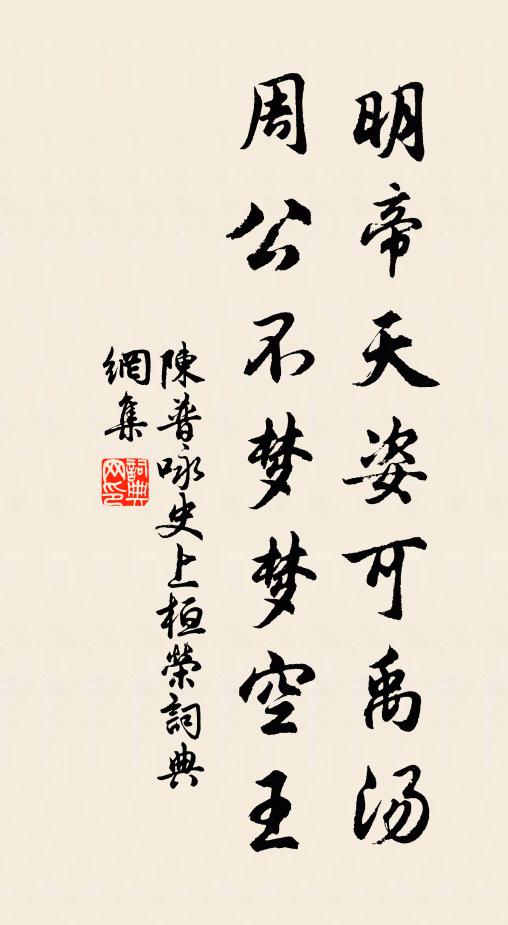 明帝天姿可禹汤
周公不梦梦空王
陳普咏史上桓榮詞典
網集
詞典
网印